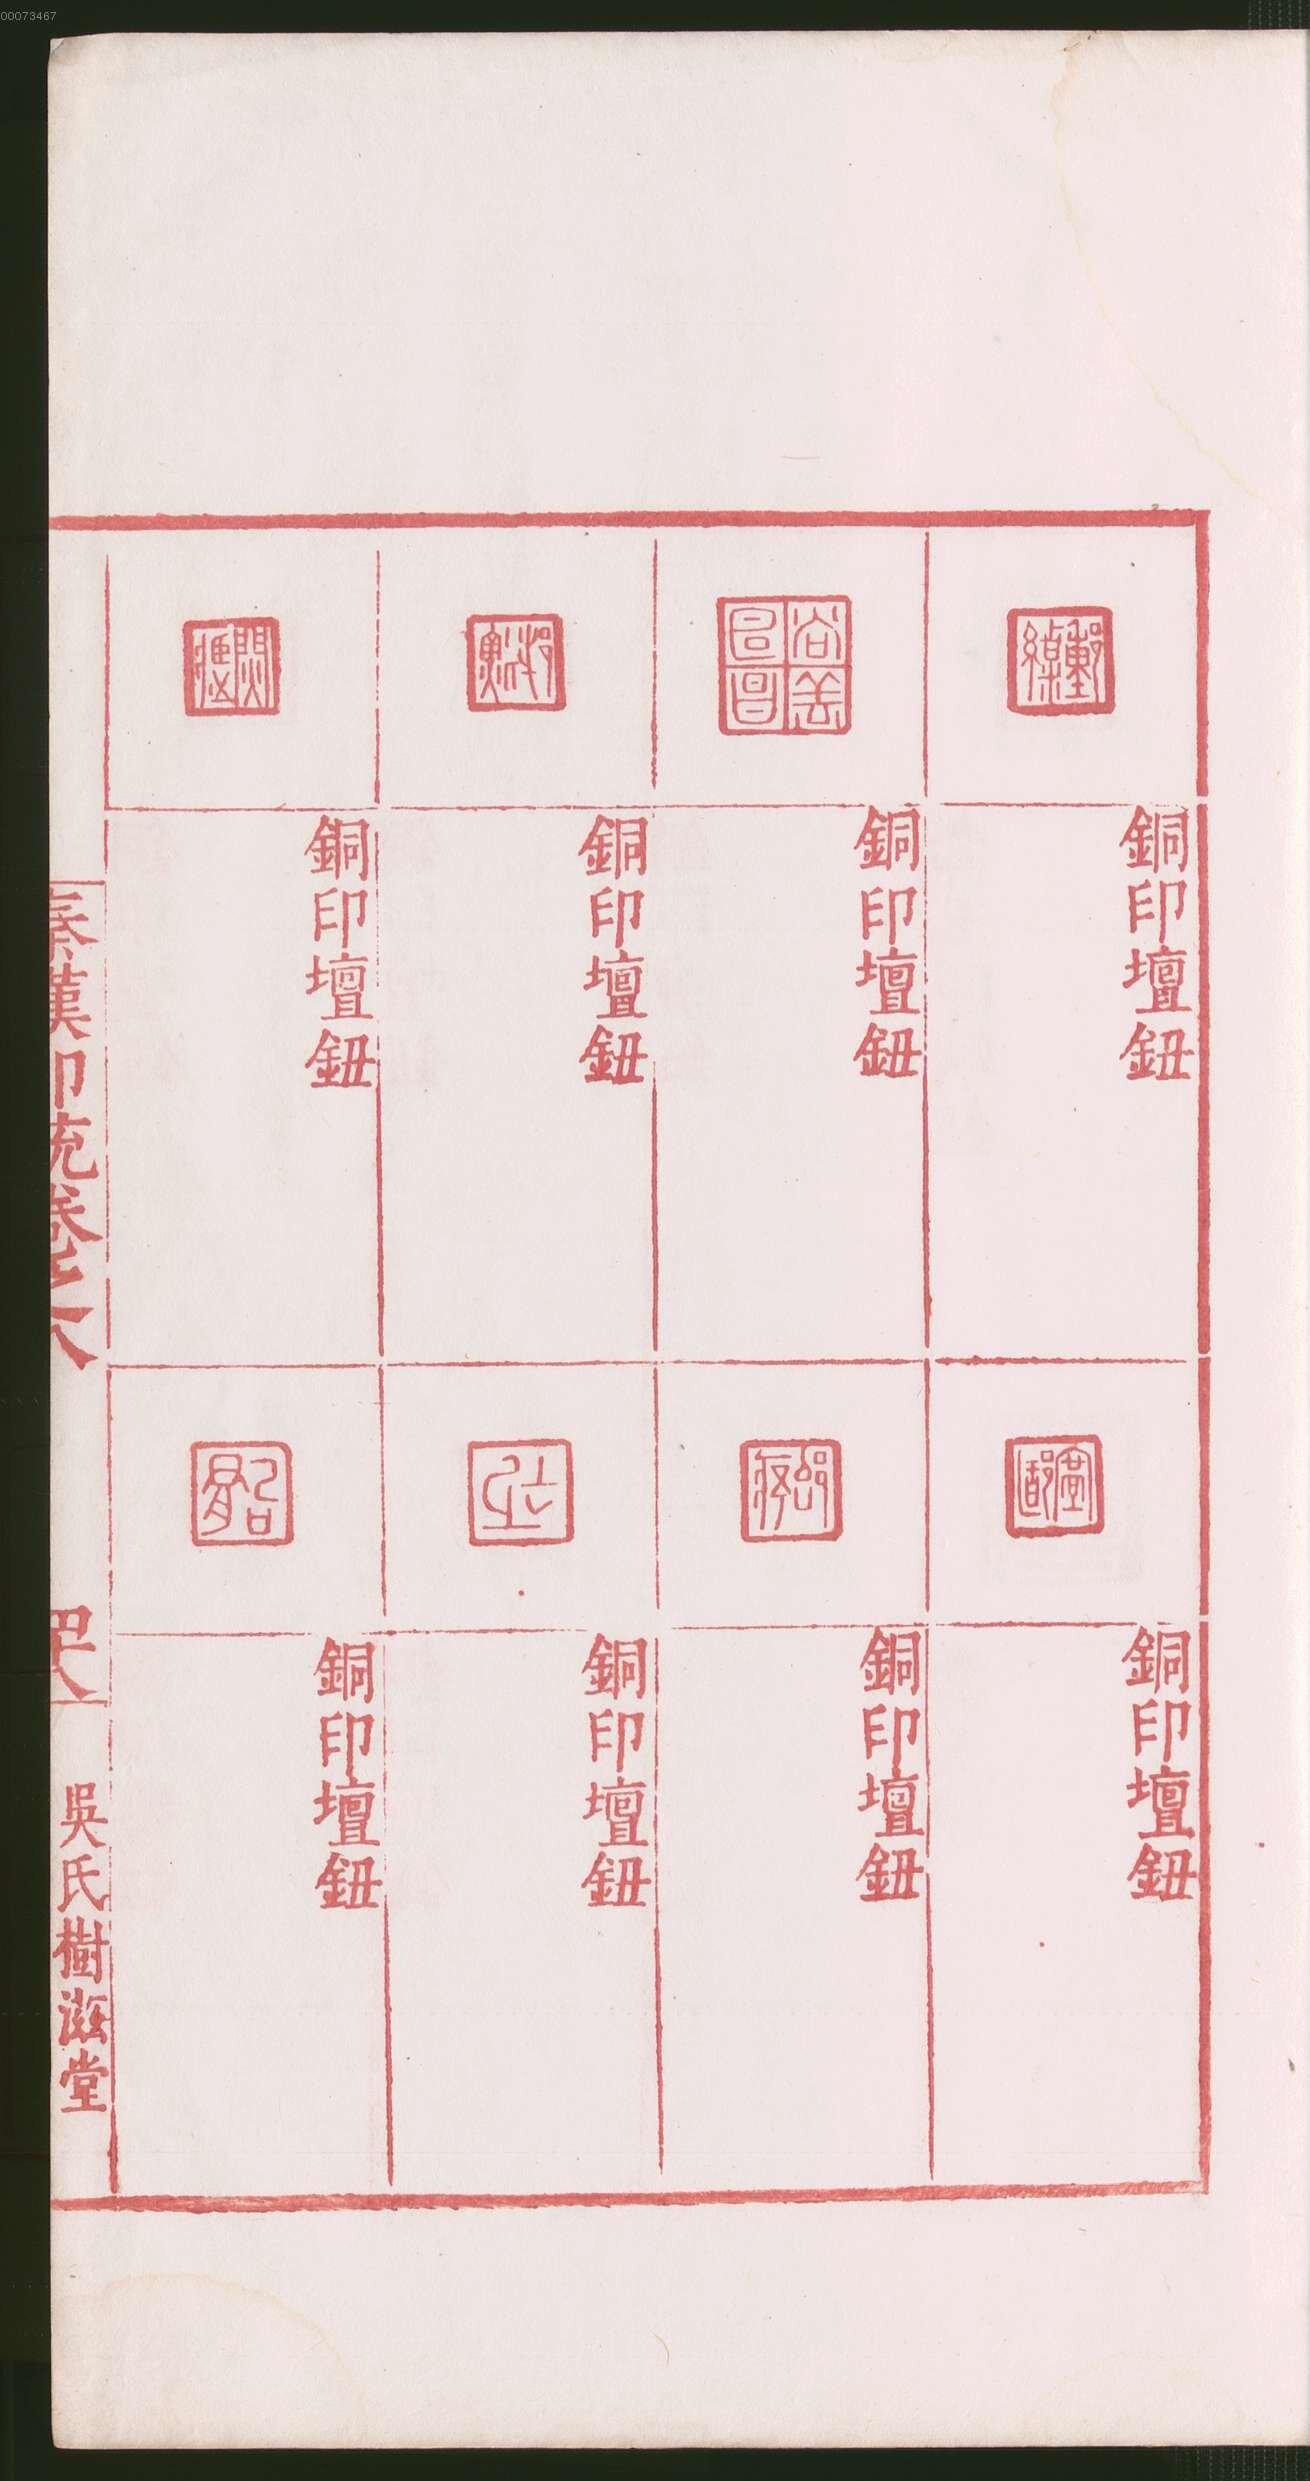 銅印壇鈕
銅印壇鈕
銅印壇鈕
銅印壇鈕
銅印壇鈕
銅印壇鈕
銅印壇鈕
銅印壇鈕
秦漢印統卷之八
吳氏樹滋堂
00073467